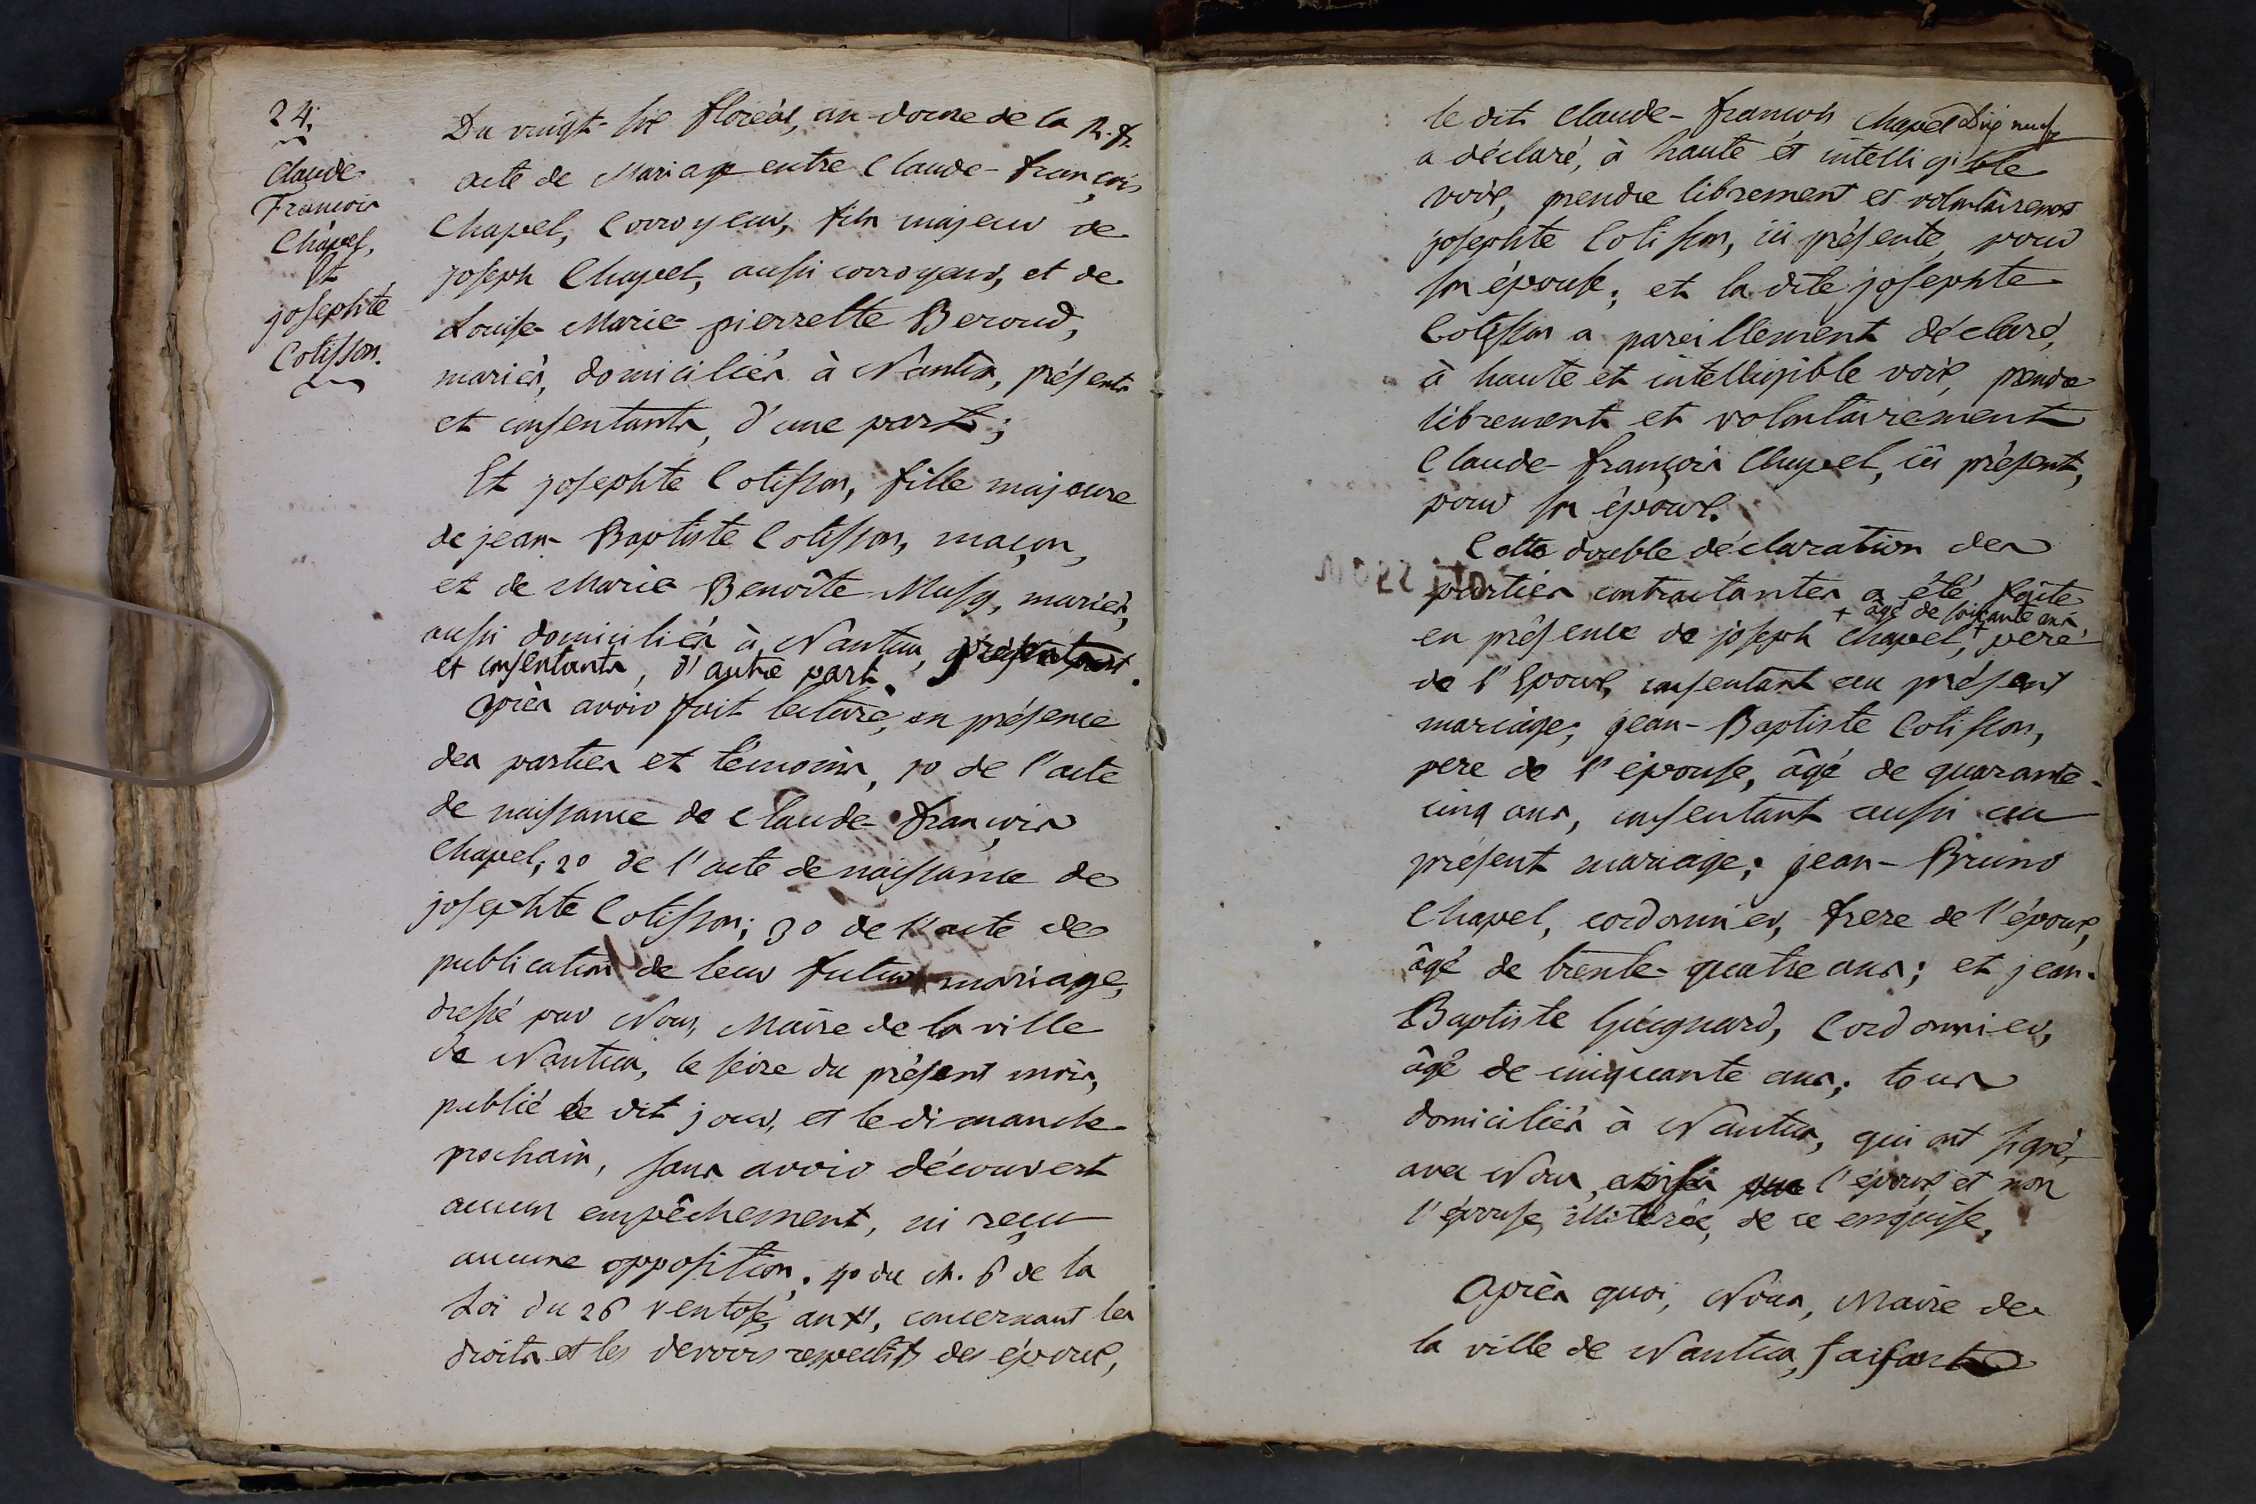 24.
Claude
François
Chapel,
Et
josephte
Cotisson.
Du vingt-six floréal, an douze de la R. f.
acte de Mariage entre Claude-françois
Chapel, Corroyeur, fils majeur de
joseph Chapel, aussi corroyeur, et de
Louise Marie pierrette Beroud,
mariés, domiciliés à Nantua, présents
et consentants, d'une part;
Et josephte Cotisson, fille majeure
de jean-Baptiste Cotisson, maçon,
et de Marie Benoîte Musy, mariés,
aussi domiciliés à Nantua, présents
et consentants, d'autre part.
Après avoir fait lecture, en présence
des parties et témoins, 1o de l'acte
de naissance de Claude-françois
Chapel; 2o de l'acte de naissance de
josephte Cotisson; 3o de l'acte de
publication de leur futur mariage,
dressé par Nous, Maire de la ville
de Nantua, le seize du présent mois,
publié le dit jour, et le dimanche
prochain, sans avoir découvert
aucun empêchement, ni reçu
aucune opposition. 4o du ch. 6 de la
Loi du 26 ventose, an XI, concernant les
droits et les devoirs respectifs des époux,
Dix neuf
le dit Claude-françois Chapel
a déclaré, à haute et intelligible
voix, prendre librement et volontairement
josephte Cotisson, ici présente, pour
son épouse; et la dite josephte
Cotisson a pareillement déclaré,
à haute et intelligible voix, prendre
librement et volontairement
Claude-françois Chapel, ici présent,
pour son époux.
Cette double déclaration des
parties contractantes a été faite
+ âgé de soixante ans,
en présence de joseph Chapel,+ pere
de l'Epoux, consentant au présent
mariage; jean-Baptiste Cotisson,
pere de l'épouse, âgé de quarante-
cinq ans, consentant aussi au
présent mariage; jean-Bruno
Chapel, cordonnier, frere de l'époux,
âgé de trente-quatre ans; et jean-
Baptiste Guignard, Cordonnier,
âgé de cinquante ans; tous
domiciliés à Nantua, qui ont signé,
avec Nous, ainsi que l'époux et non
l'épouse, illiterée, de ce enquise.
Après quoi, Nous, Maire de
la ville de Nantua, faisant